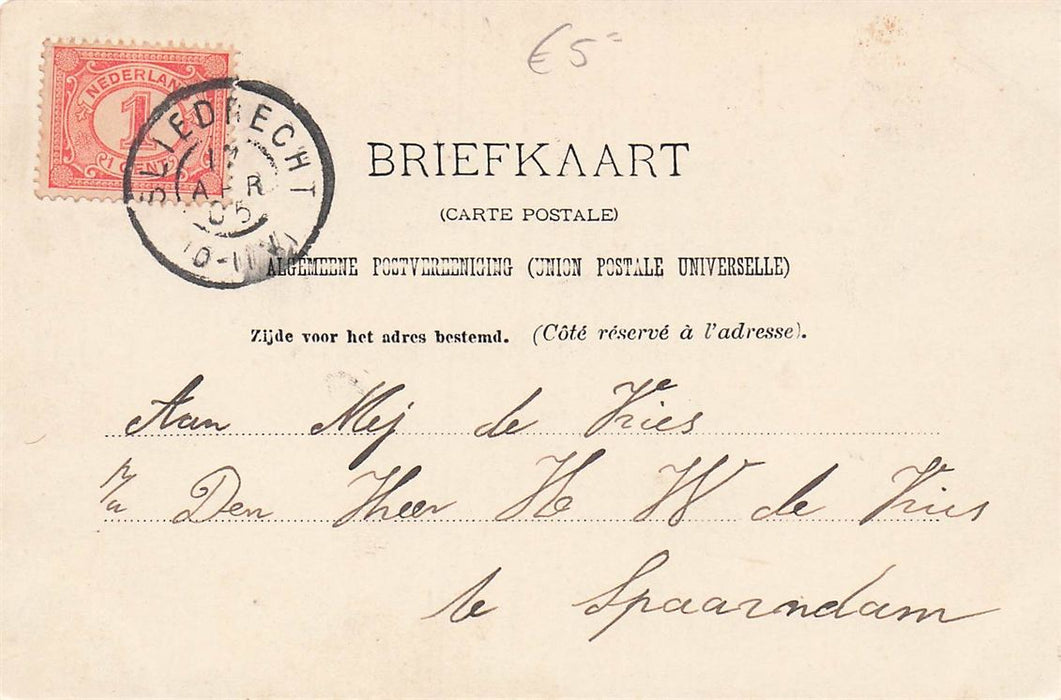 € 5=
NEDERLAND
1
1 CENT
SLIEDRECHT
17
APR
05
10-11V
BRIEFKAART
(CARTE POSTALE)
ALGEMEENE POSTVEREENIGING (UNION POSTALE UNIVERSELLE)
Zijde voor het adres bestemd. (Côté réservé à l'adresse).
Aan Mej de Vries
p/a Den Heer H W de Vries
te Spaarndam